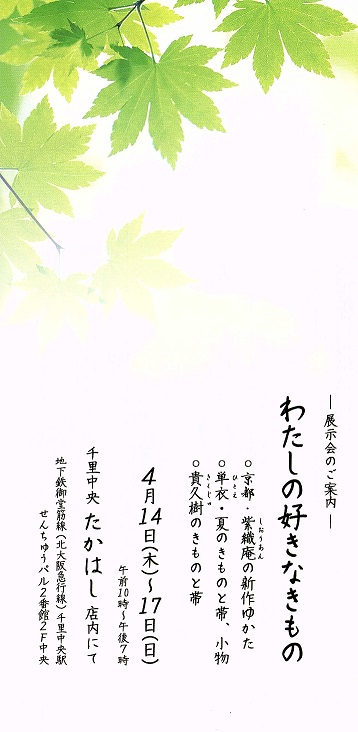 ― 展示会のご案内 ―
わたしの好きなきもの
○京都・紫織庵の新作ゆかた
しおりあん
○単衣・夏のきものと帯、小物
ひとえ
○貴久樹のきものと帯
きくじゅ
4月14日(木)〜17日(日)
午前10時〜午後7時
千里中央 たかはし 店内にて
地下鉄御堂筋線(北大阪急行線)千里中央駅
せんちゅうパル2番館2F中央